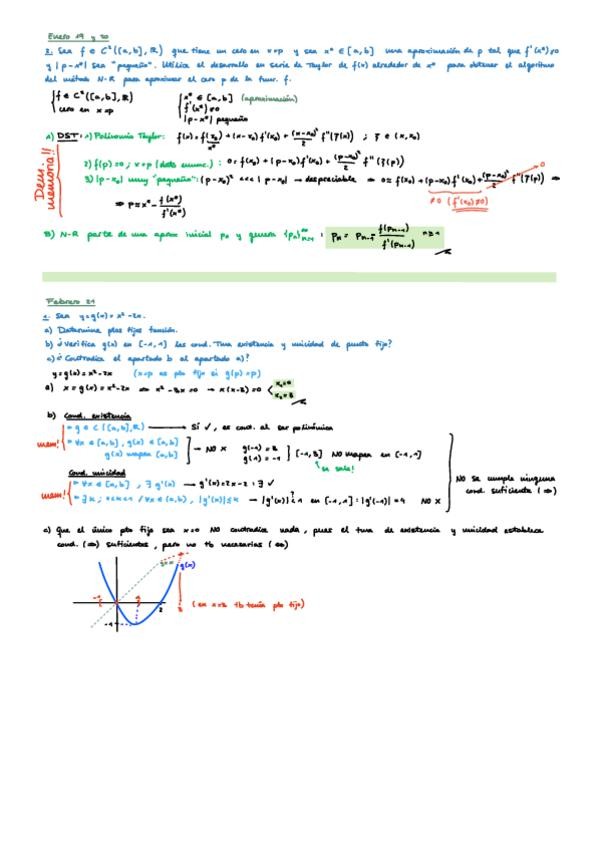 Enero 19 y 20
2. Sea f ∈ C²([a,b],ℝ) que tiene un cero en x=p y sea x* ∈ [a,b] una aproximación de p tal que f'(x*)≠0
y |p-x*| sea "pequeño". Utilice el desarrollo en serie de Taylor de f(x) alrededor de x* para obtener el algoritmo
del método N-R para aproximar el cero p de la func. f.
{ f ∈ C²([a,b],ℝ) { x* ∈ [a,b] (aproximación)
cero en x=p f'(x*)≠0
|p-x*| pequeño
A) DST: 1) Polinomio Taylor: f(x)=f(x₀)+(x-x₀)f'(x₀)+(x-x₀)²/2 f''(ξ(x)) ; ξ ∈ (x,x₀)
x*
Dem. memoria!!
2) f(p)=0 ; x=p (dato enunc.) : 0=f(x₀)+(p-x₀)f'(x₀)+(p-x₀)²/2 f''(ξ(p))
3) |p-x₀| muy "pequeño": (p-x₀)² <<< |p-x₀| → despreciable ⇒ 0≈f(x₀)+(p-x₀)f'(x₀)+(p-x₀)²/2 f''(ξ(p)) ⇒
0
≠0 (f'(x₀)≠0)
⇒ p≈x*-f(x*)/f'(x*)
B) N-R parte de una aprox inicial p₀ y genera {pₙ}ₙ₌₁^∞ : pₙ = pₙ₋₁ - f(pₙ₋₁)/f'(pₙ₋₁) n≥1
Febrero 21
1. Sea y=g(x)=x²-2x.
a) Determine ptos fijos función.
b) ¿Verifica g(x) en [-1,1] las cond. Tma existencia y unicidad de punto fijo?
c) ¿Contradice el apartado b al apartado a)?
y=g(x)=x²-2x (x=p es pto fijo si g(p)=p)
a) x=g(x)=x²-2x ⇒ x²-3x=0 → x(x-3)=0 < x₁=0
x₂=3
b) Cond. existencia
• g ∈ C([a,b],ℝ) → Sí ✓, es cont. al ser polinómica
mem! • ∀x ∈ [a,b], g(x) ∈ [a,b] → NO X g(-1)=3 [-1,3] NO mapea en [-1,1]
g(x) mapea [a,b] g(1)=-1
se sale!
Cond unicidad
• ∀x ∈ [a,b], ∃ g'(x) → g'(x)=2x-2 : ∃ ✓
mem! • ∃ k; 0<k<1 / ∀x ∈ (a,b), |g'(x)|≤k → |g'(x)|<1 en [-1,1] : |g'(-1)|=4 NO X
NO se cumple ninguna
cond. suficiente (⇒)
c) Que el único pto fijo sea x=0 NO contradice nada, pues el tma de existencia y unicidad establece
cond. (⇒) suficientes, pero no tb necesarias (⇐)
y=x g(x)
-1 1 2 3
-1
(en x=3 tb tenía pto fijo)